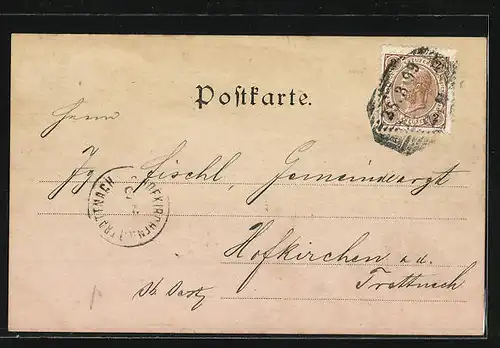 Postkarte.
25.8.99
Herrn
Jg Fischl, Gemeindearzt
HOFKIRCHEN A.D. TRATTNACH
Hofkirchen a.d.
Trattnach